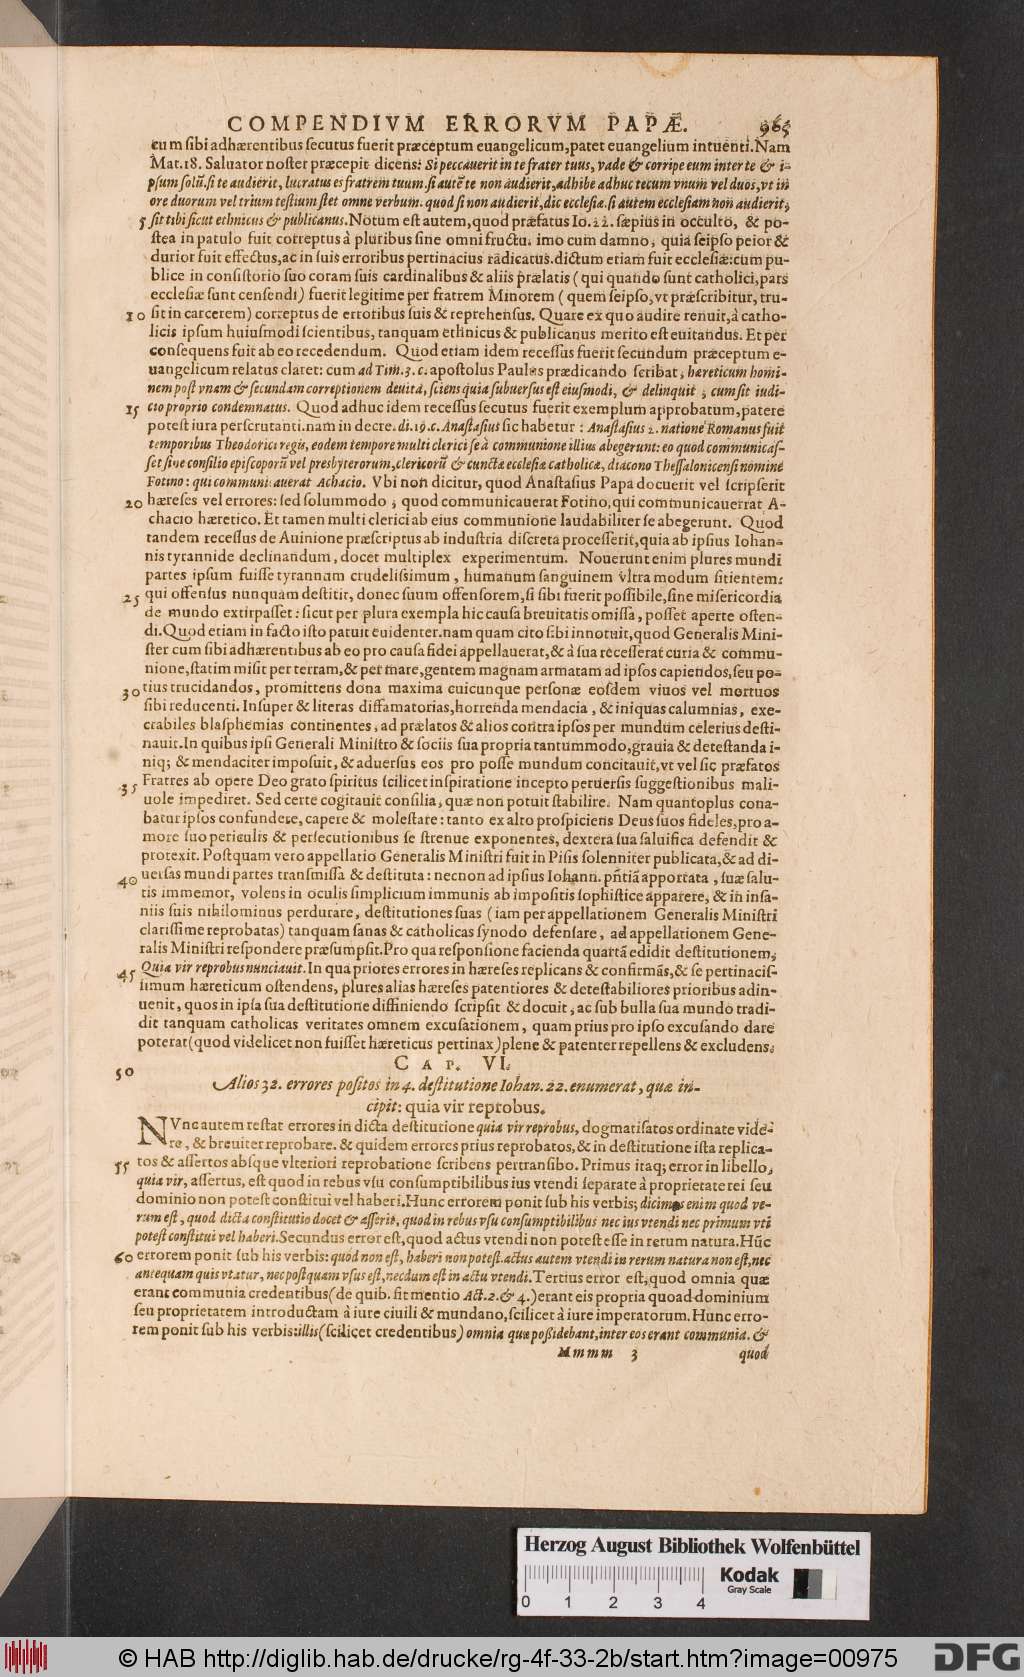 COMPENDIVM ERRORVM PAPÆ. 965
cum sibi adhærentibus secutus fuerit præceptum euangelicum, patet euangelium intuenti. Nam
Mat. 18. Saluator noster præcepit dicens: Si peccauerit in te frater tuus, vade & corripe eum inter te & i-
psum solũ. si te audierit, lucratus es fratrem tuum. si autē te non audierit, adhibe adhuc tecum vnum vel duos, vt in
ore duorum vel trium testium stet omne verbum. quod si non audierit, dic ecclesiæ. si autem ecclesiam non audierit,
5 sit tibi sicut ethnicus & publicanus. Notum est autem, quod præfatus Io. 22. sæpius in occulto, & po-
stea in patulo fuit correptus à pluribus sine omni fructu. imo cum damno, quia seipso peior &
durior fuit effectus, ac in suis erroribus pertinacius radicatus. dictum etiam fuit ecclesiæ: cum pu-
blice in consistorio suo coram suis cardinalibus & aliis prælatis ( qui quando sunt catholici, pars
ecclesiæ sunt censendi) fuerit legitime per fratrem Minorem ( quem seipso, vt præscribitur, tru-
10 sit in carcerem) correptus de erroribus suis & reprehensus. Quare ex quo audire renuit, à catho-
licis ipsum huiusmodi scientibus, tanquam ethnicus & publicanus merito est euitandus. Et per
consequens fuit ab eo recedendum. Quod etiam idem recessus fuerit secundum præceptum e-
uangelicum relatus claret: cum ad Tim. 3. c. apostolus Paulus prædicando scribat, hæreticum homi-
nem post vnam & secundam correptionem deuita, sciens quia subuersus est eiusmodi, & delinquit, cum sit iudi-
15 cio proprio condemnatus. Quod adhuc idem recessus secutus fuerit exemplum approbatum, patere
potest iura perscrutanti. nam in decre. di. 19. c. Anastasius sic habetur : Anastasius 2. natione Romanus fuit
temporibus Theodorici regis, eodem tempore multi clerici se à communione illius abegerunt: eo quod communicas-
set sine consilio episcoporũ vel presbyterorum, clericorũ & cunctæ ecclesiæ catholicæ, diacono Thessalonicensi nomine
Fotino: qui communicauerat Achacio. Vbi non dicitur, quod Anastasius Papa docuerit vel scripserit
20 hæreses vel errores: sed solummodo, quod communicauerat Fotino, qui communicauerrat A-
chacio hæretico. Et tamen multi clerici ab eius communione laudabiliter se abegerunt. Quod
tandem recessus de Auinione præscriptus ab industria discreta processerit, quia ab ipsius Iohan-
nis tyrannide declinandum, docet multiplex experimentum. Nouerunt enim plures mundi
partes ipsum fuisse tyrannum crudelissimum, humanum sanguinem vltra modum sitientem:
25 qui offensus nunquam destitit, donec suum offensorem, si sibi fuerit possibile, sine misericordia
de mundo extirpasset: sicut per plura exempla hic causa breuitatis omissa, posset aperte osten-
di. Quod etiam in facto isto patuit euidenter. nam quam cito sibi innotuit, quod Generalis Mini-
ster cum sibi adhærentibus ab eo pro causa fidei appellauerat, & à sua recesserat curia & commu-
nione, statim misit per terram, & per mare, gentem magnam armatam ad ipsos capiendos, seu po-
30 tius trucidandos, promittens dona maxima cuicunque personæ eosdem viuos vel mortuos
sibi reducenti. Insuper & literas diffamatorias, horrenda mendacia, & iniquas calumnias, exe-
crabiles blasphemias continentes, ad prælatos & alios contra ipsos per mundum celerius desti-
nauit. In quibus ipsi Generali Ministro & sociis sua propria tantummodo, grauia & detestanda i-
niq; & mendaciter imposuit, & aduersus eos pro posse mundum concitauit, vt vel sic præfatos
35 Fratres ab opere Deo grato spiritus scilicet inspiratione incepto peruersis suggestionibus mali-
uole impediret. Sed certe cogitauit consilia, quæ non potuit stabilire. Nam quanto plus cona-
batur ipsos confundere, capere & molestare: tanto ex alto prospiciens Deus suos fideles, pro a-
more suo periculis & persecutionibus se strenue exponentes, dextera sua saluifica defendit &
protexit. Postquam vero appellatio Generalis Ministri fuit in Pisis solenniter publicata, & ad di-
40 uersas mundi partes transmissa & destituta: necnon ad ipsius Iohann. pñtiã apportata, suæ salu-
tis immemor, volens in oculis simplicium immunis ab impositis sophistice apparere, & in insa-
niis suis nihilominus perdurare, destitutiones suas (iam per appellationem Generalis Ministri
clarissime reprobatas) tanquam sanas & catholicas synodo defensare, ad appellationem Gene-
ralis Ministri respondere præsumpsit. Pro qua responsione facienda quartã edidit destitutionem,
45 Quia vir reprobus nunciauit. In qua priores errores in hæreses replicans & confirmãs, & se pertinacis-
simum hæreticum ostendens, plures alias hæreses patentiores & detestabiliores prioribus adin-
uenit, quos in ipsa sua destitutione diffiniendo scripsit & docuit, ac sub bulla sua mundo tradi-
dit tanquam catholicas veritates omnem excusationem, quam prius pro ipso excusando dare
poterat (quod videlicet non fuisset hæreticus pertinax) plene & patenter repellens & excludens.
CAP. VI.
50
Alios 32. errores positos in 4. destitutione Iohan. 22. enumerat, quæ in-
cipit: quia vir reprobus.
NVnc autem restat errores in dicta destitutione quia vir reprobus, dogmatisatos ordinate vide-
re, & breuiter reprobare. & quidem errores prius reprobatos, & in destitutione ista replica-
55 tos & assertos absque vlteriori reprobatione scribens pertransibo. Primus itaq; error in libello,
quia vir, assertus, est quod in rebus vsu consumptibilibus ius vtendi separate à proprietate rei seu
dominio non potest constitui vel haberi. Hunc errorem ponit sub his verbis; dicimus enim quod ve-
rum est, quod dicta constitutio docet & asserit, quod in rebus vsu consumptibilibus nec ius vtendi nec primum vti
potest constitui vel haberi. Secundus error est, quod actus vtendi non potest esse in rerum natura. Hũc
60 errorem ponit sub his verbis: quod non est, haberi non potest. actus autem vtendi in rerum natura non est, nec
antequam quis vtatur, nec postquam vsus est, necdum est in actu vtendi. Tertius error est, quod omnia quæ
erant communia credentibus (de quib. fit mentio Act. 2. & 4.) erant eis propria quoad dominium
seu proprietatem introductam à iure ciuili & mundano, scilicet à iure imperatorum. Hunc erro-
rem ponit sub his verbis: illis (scilicet credentibus) omnia quæ possidebant, inter eos erant communia. &
Mmmm 3 quod
Herzog August Bibliothek Wolfenbüttel
Kodak
Gray Scale
0 1 2 3 4
© HAB http://diglib.hab.de/drucke/rg-4f-33-2b/start.htm?image=00975
DFG